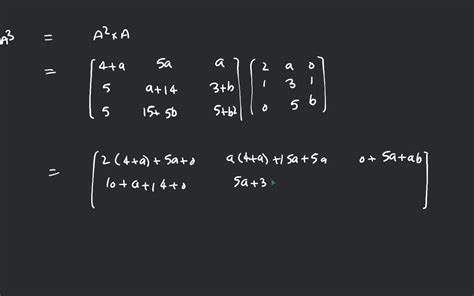 A³ = A² × A
= [ 4+a 5a a ] [ 2 a 0 ]
[ 5 a+14 3+b ] [ 1 3 1 ]
[ 5 15+5b 5+b² ] [ 0 5 b ]
= [ 2(4+a)+5a+0 a(4+a)+15a+5a 0+5a+ab ]
[ 10+a+14+0 5a+3 ]